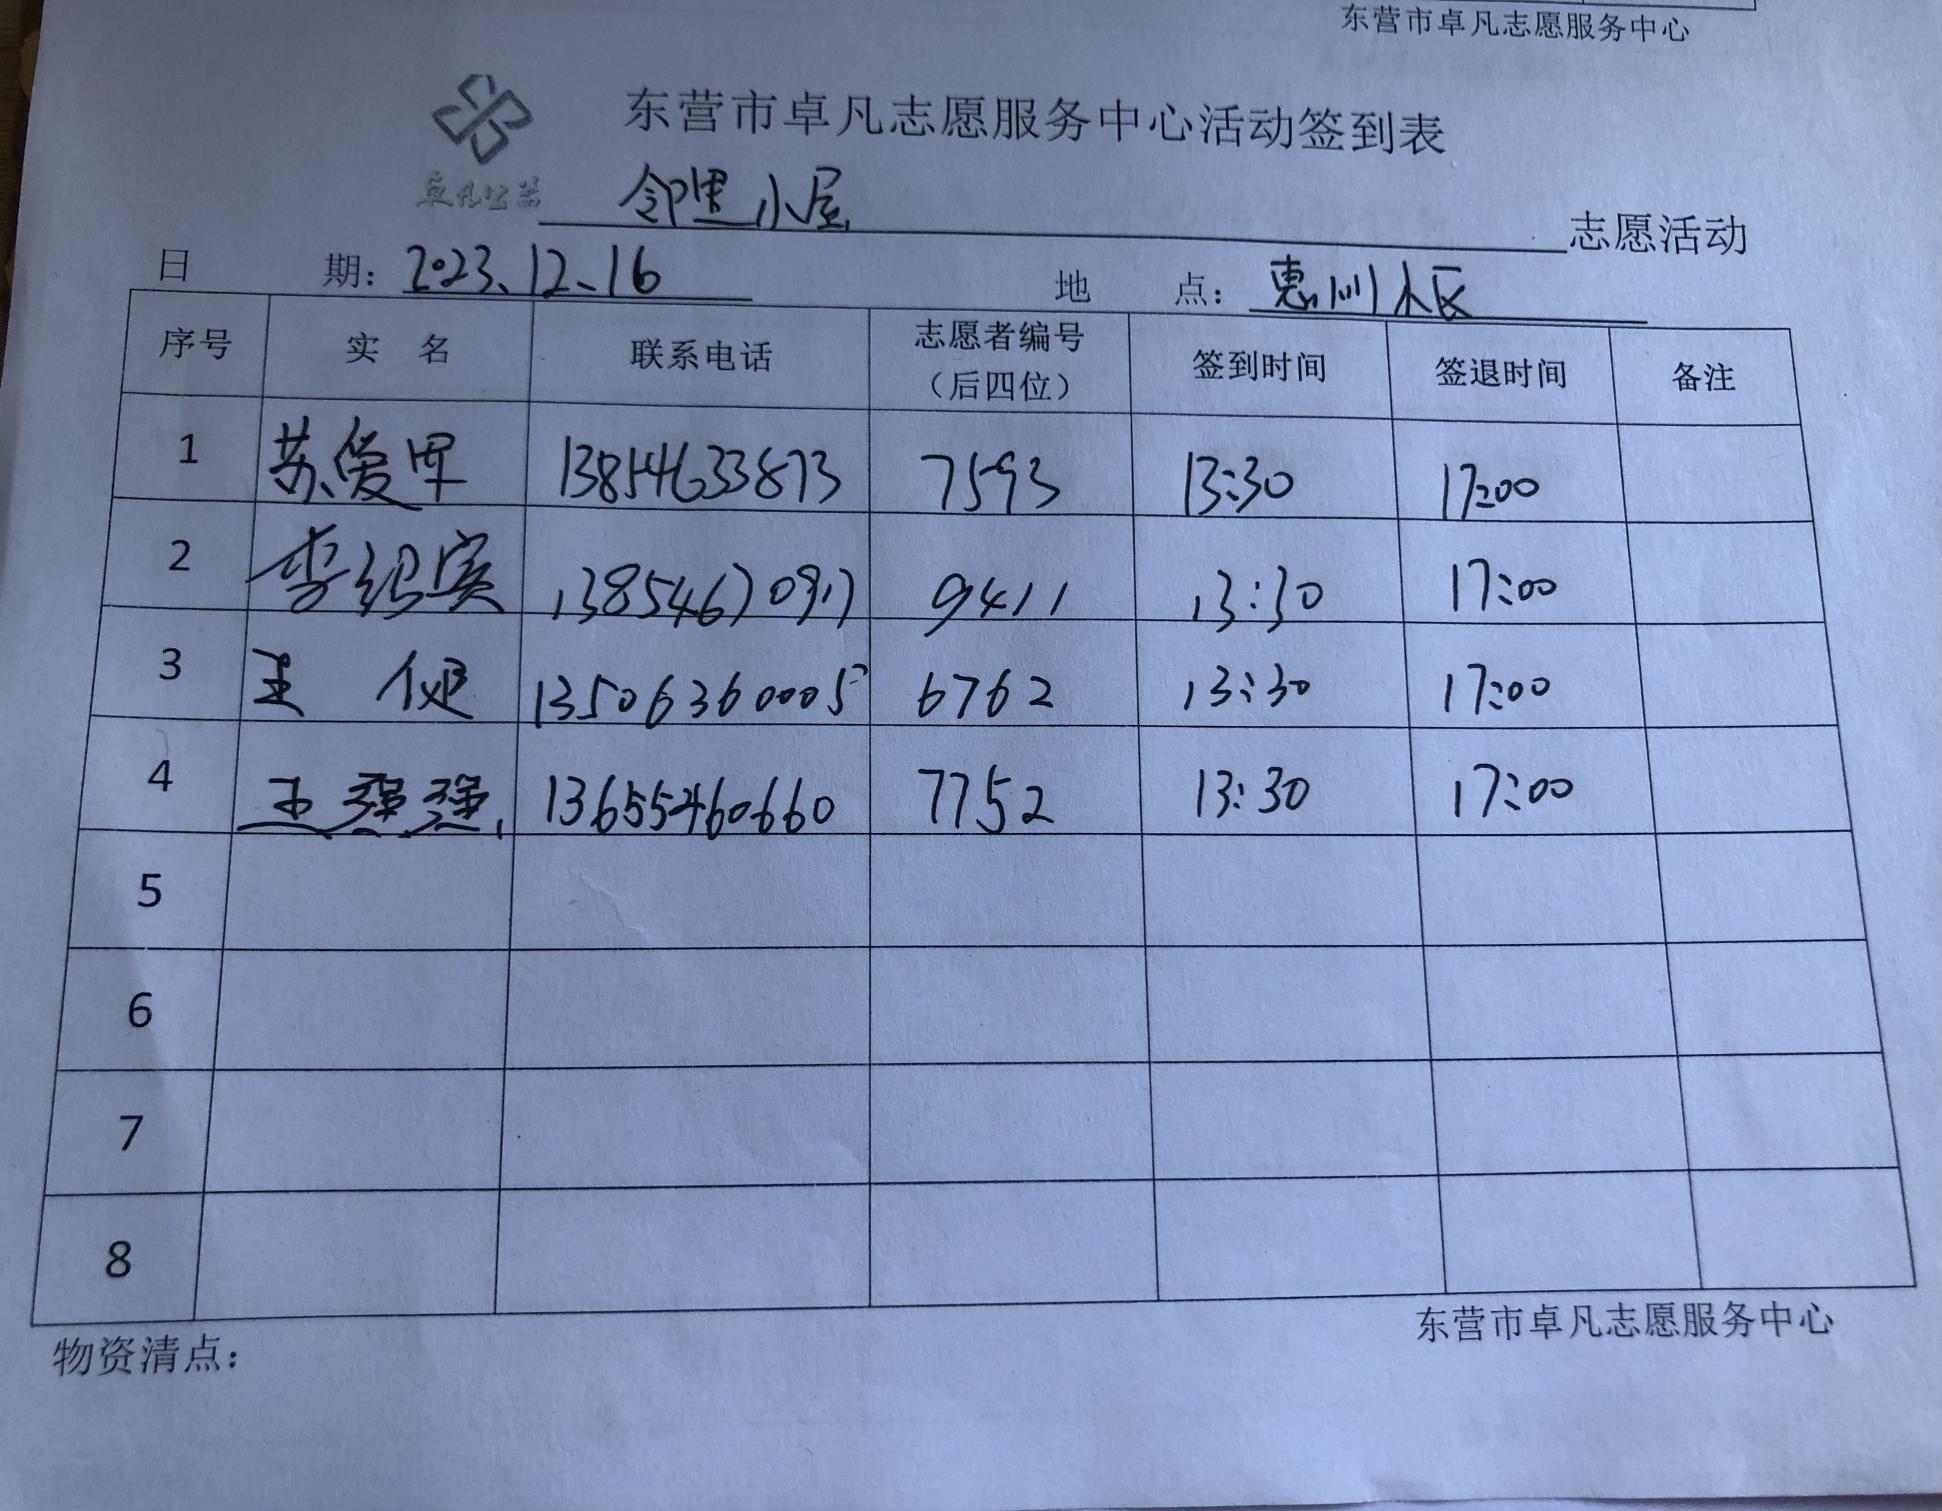 东营市卓凡志愿服务中心
东营市卓凡志愿服务中心活动签到表
卓凡公益 邻里小屋 志愿活动
日 期：2023、12、16 地 点：惠州小区
序号 实 名 联系电话 志愿者编号（后四位） 签到时间 签退时间 备注
1 苏爱军 13854633873 7593 13:30 17:00
2 李绍宾 9411 13:30 17:00
3 王 健 13506360005 6762 13:30 17:00
4 王强强 13655460660 7752 13:30 17:00
5
6
7
8
东营市卓凡志愿服务中心
物资清点：